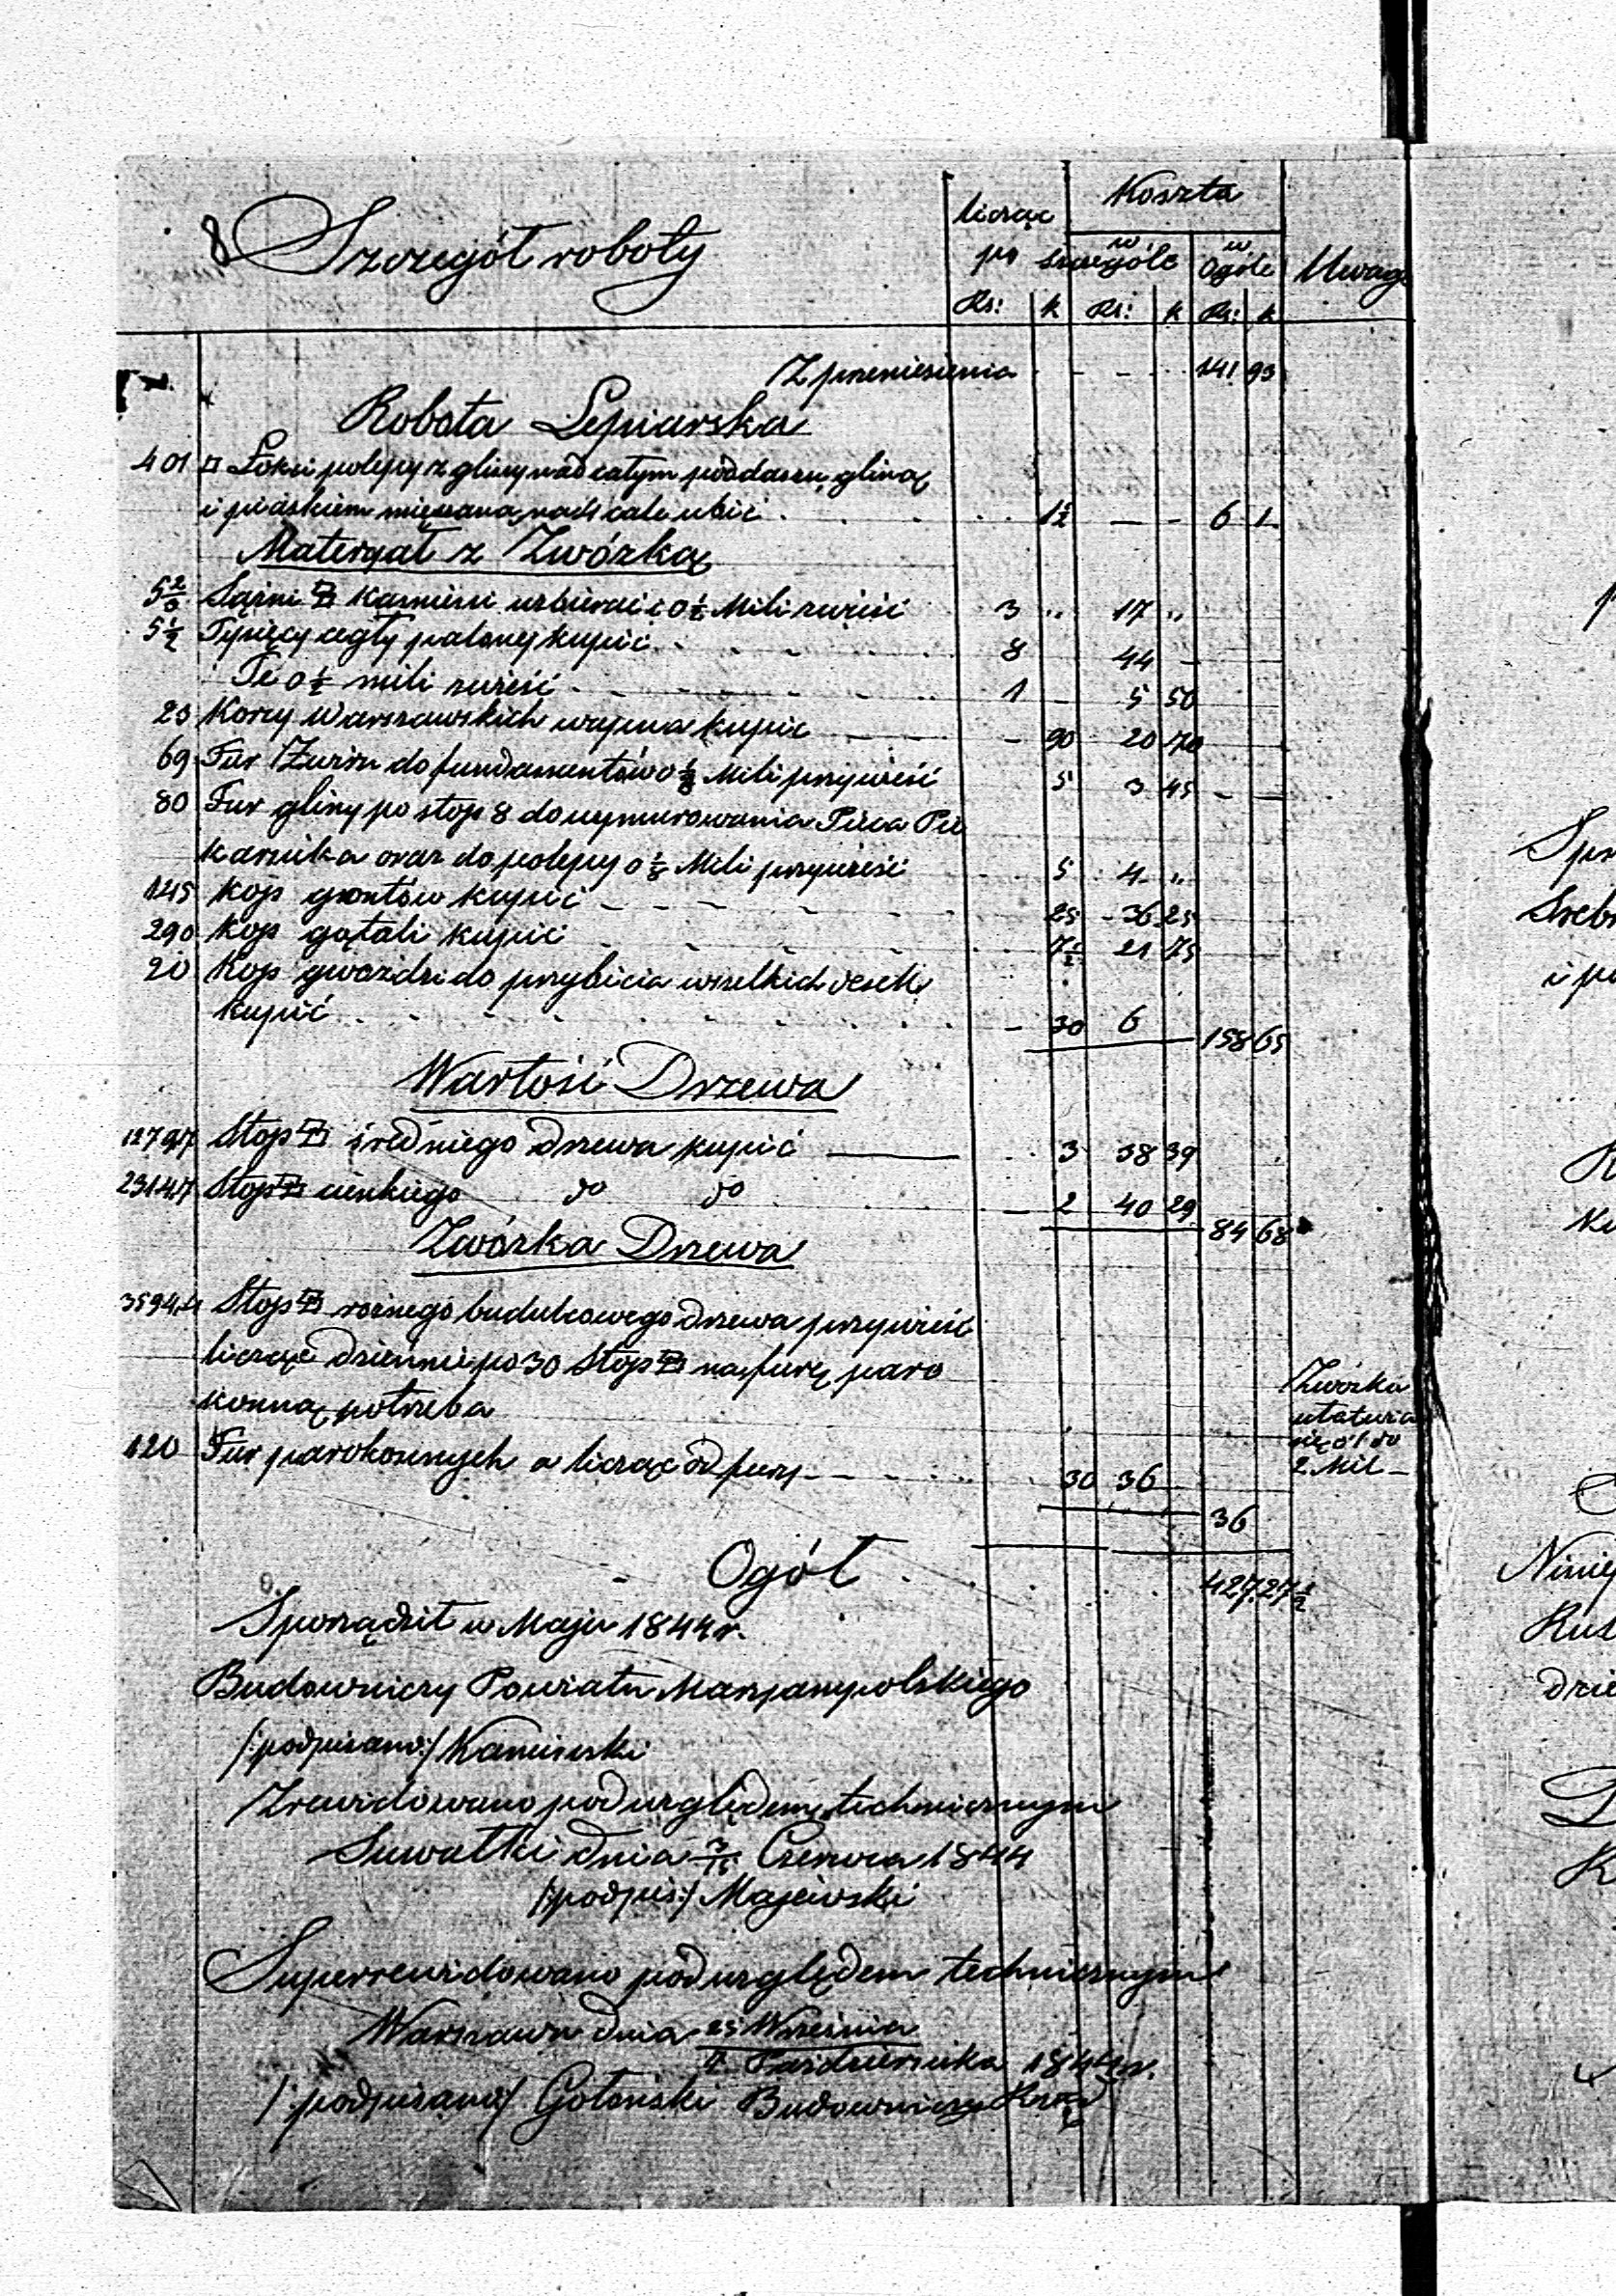 8 Szczegół roboty
licząc po Rs: k
Koszta
w szczególe Rs: k
w Ogóle Rs: k
Uwagi
Z przeniesienia - - 141 93
Robota Lepiarska
401 □ Łokci polepy z gliny nad całym poddaszu, gliną
i piaskiem mięszaną ubić . . . 1½ — - 6 1
Materyał z Zwózką
Sążni kamieni uzbierać i o ½ Mili zwieść 3 „ 17 „
5½ Tysięcy cegły palonej kupić 8 44 -
Té o ½ mili zwieść 1 - 5 50
23 Korcy Warszawskich wapna kupić - 90 20 70
69 Fur Żwiru do fundamentów o ⅛ Mili przywieść 5 3 45 - -
80 Fur gliny po stop 8 do wymurowania Pieca Pie
karnika oraz do polepy o ⅛ Mili przywieść 5 4 „
145 Kop gontów kupić 25 36 25
290 Kop gątali kupić 7½ 21 75
20 Kop gwoździ do przybicia wszelkich desek
kupić - 30 6 158 65
Wartość Drzewa
1279,7 Stop średniego drzewa kupić 3 38 39
Stop cienkiego do do - 2 40 29
84 68
Zwózka Drzewa
3594,4 Stop rożnego budulcowego drzewa przywieść
licząc dziennie po 30 Stop na furę paro
konną potrzeba
120 Fur parokonnych a licząc od fury 30 36
36
Zwózka
ułatwia
się o 1 do
2 Mil -
Ogół . . . 427 27½
Sporządził w Maju 1844 r.
Budowniczy Powiatu Maryampolskiego
/:podpisano:/ Kamieński
Zrewidowano pod względem technicznym
Suwałki dnia 3/15 Czerwca 1844
/:podpis:/ Majewski
Superrewidowano pod względem technicznym
Warszawa dnia 25 Września
Październ­ika 1844 r.
/:podpisano:/ Gołoński Budowniczy Rząd